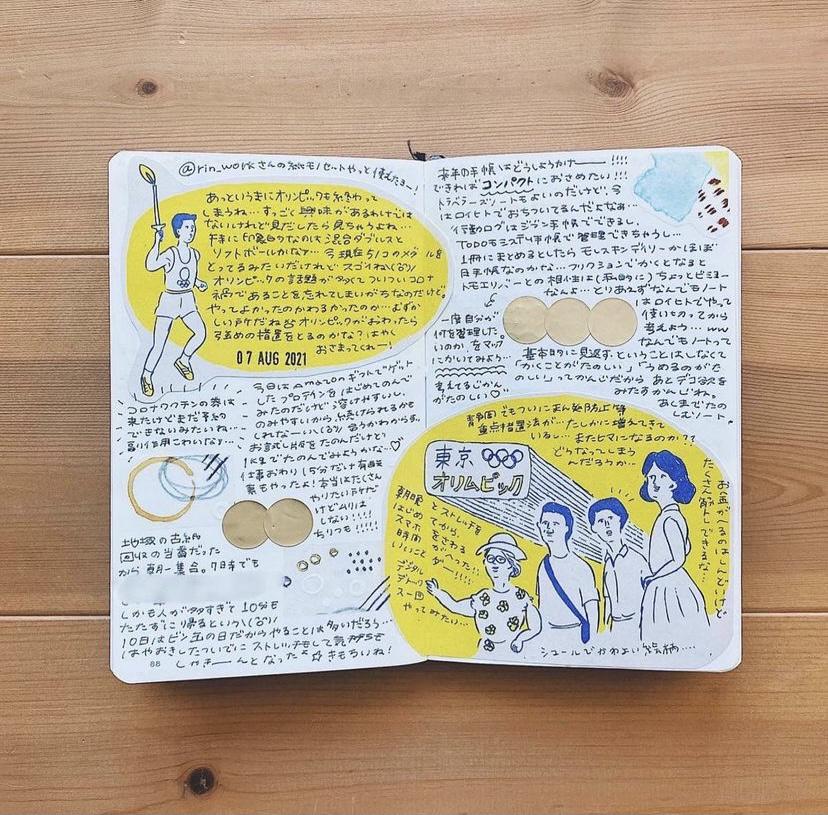 @rin_workさんの紙モノセットやっと使えたよー!
あっというまにオリンピックも終わって
しまうね…すっごく興味があるわけでは
ないけれど見だしたら見ちゃうよね…
特に印象的なのは混合ダブルスと
ソフトボールかな?… 今現在51コのメダルを
とってるみたいだけれど スゴイね
オリンピックの話題が多くてついついコロナ
禍であることを忘れてしまいがちなのだけど。
やってよかったのかわるかったのか…むずか
しい所だね オリンピックがおわったら
強めの措置をとるのかな?はやく
おさまってくれー!
07 AUG 2021
コロナワクチンの券は
来たけどまだ予約
できないみたいね…
副作用こわいなぁ…
今日はAmazonのギフトでゲット
したプロテインをはじめてのんで
みたのだけど溶けやすいし
のみやすいから続けられるかも
しれなーい 合うかわからず
お試し版をたのんだけど
1kgでたのんでみようかな…♡
仕事おわり15分だけ有酸
素もやったよ!本当はたくさん
やりたい所だ
けどムリは
しない!!!!
ちりつも!!!!!
地域の古紙
回収の当番だった
から朝一集合。7時半でも
しかも人が多すぎて10分も
たたずに帰るという
10日はビン缶の日だからやることは多いだろう…
はやおきしたついでにストレッチもして気持も
しゃきーーんとなった☆きもちいね!
88
来年の手帳はどうしようかな――!!!!
できればコンパクトにおさめたい!!!
トラベラーズノートもよいのだけど、今
はロイヒトでおちついてるんだよなぁ…
行動のログはジブン手帳でできるし、
TODOもミスディ手帳で管理できちゃうし…
1冊にまとめるとしたら モレスキンデイリーかほぼ
日手帳なのかな… フリクションでかくとなると
トモエリバーとの相性は(私的に)ちょっとビミョー
なんよ… とりあえずなんでもノート
はロイヒトでやって
使いきってから
考えよう… ww
なんでもノートって
一度自分が
何を管理した
いのか、をマップ
にかいてみよう…
考えてるじかん
がたのしい♡
基本的に見返す、ということはしなくて
「かくことがたのしい」「うめるのがた
のしい」ってのんだから あとデコ欲を
みたすかんじね。
あくまでたの
しむノート
静岡でもついにまん延防止等
重点措置法が…たしかに増えてきて
いるし… またヒマになるのか??
どうなってしまう
んだろうか…
東京
オリムピック
朝晩
とストレッチを
してから、
はじめ
スマホ
時間
デジタル
デトック
スー回
やってみたい…
お金がへるのはしんどいけど
たくさん筋トレできるな…
シュールでかわいい絵柄…